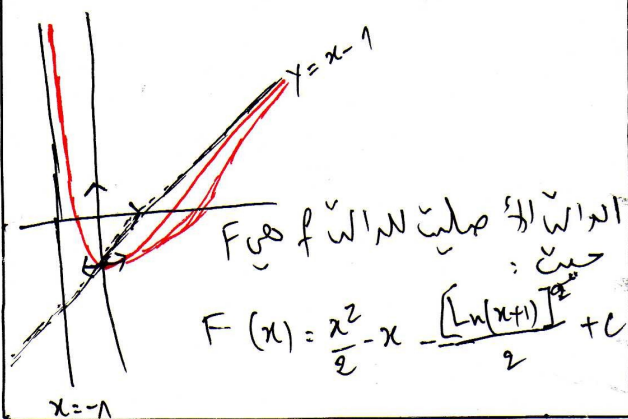 y = x - 1
الدالة الأصلية للدالة f هي F
حيث :
F(x) = x²/2 - x - [Ln(x+1)]²/2 + c
x = -1